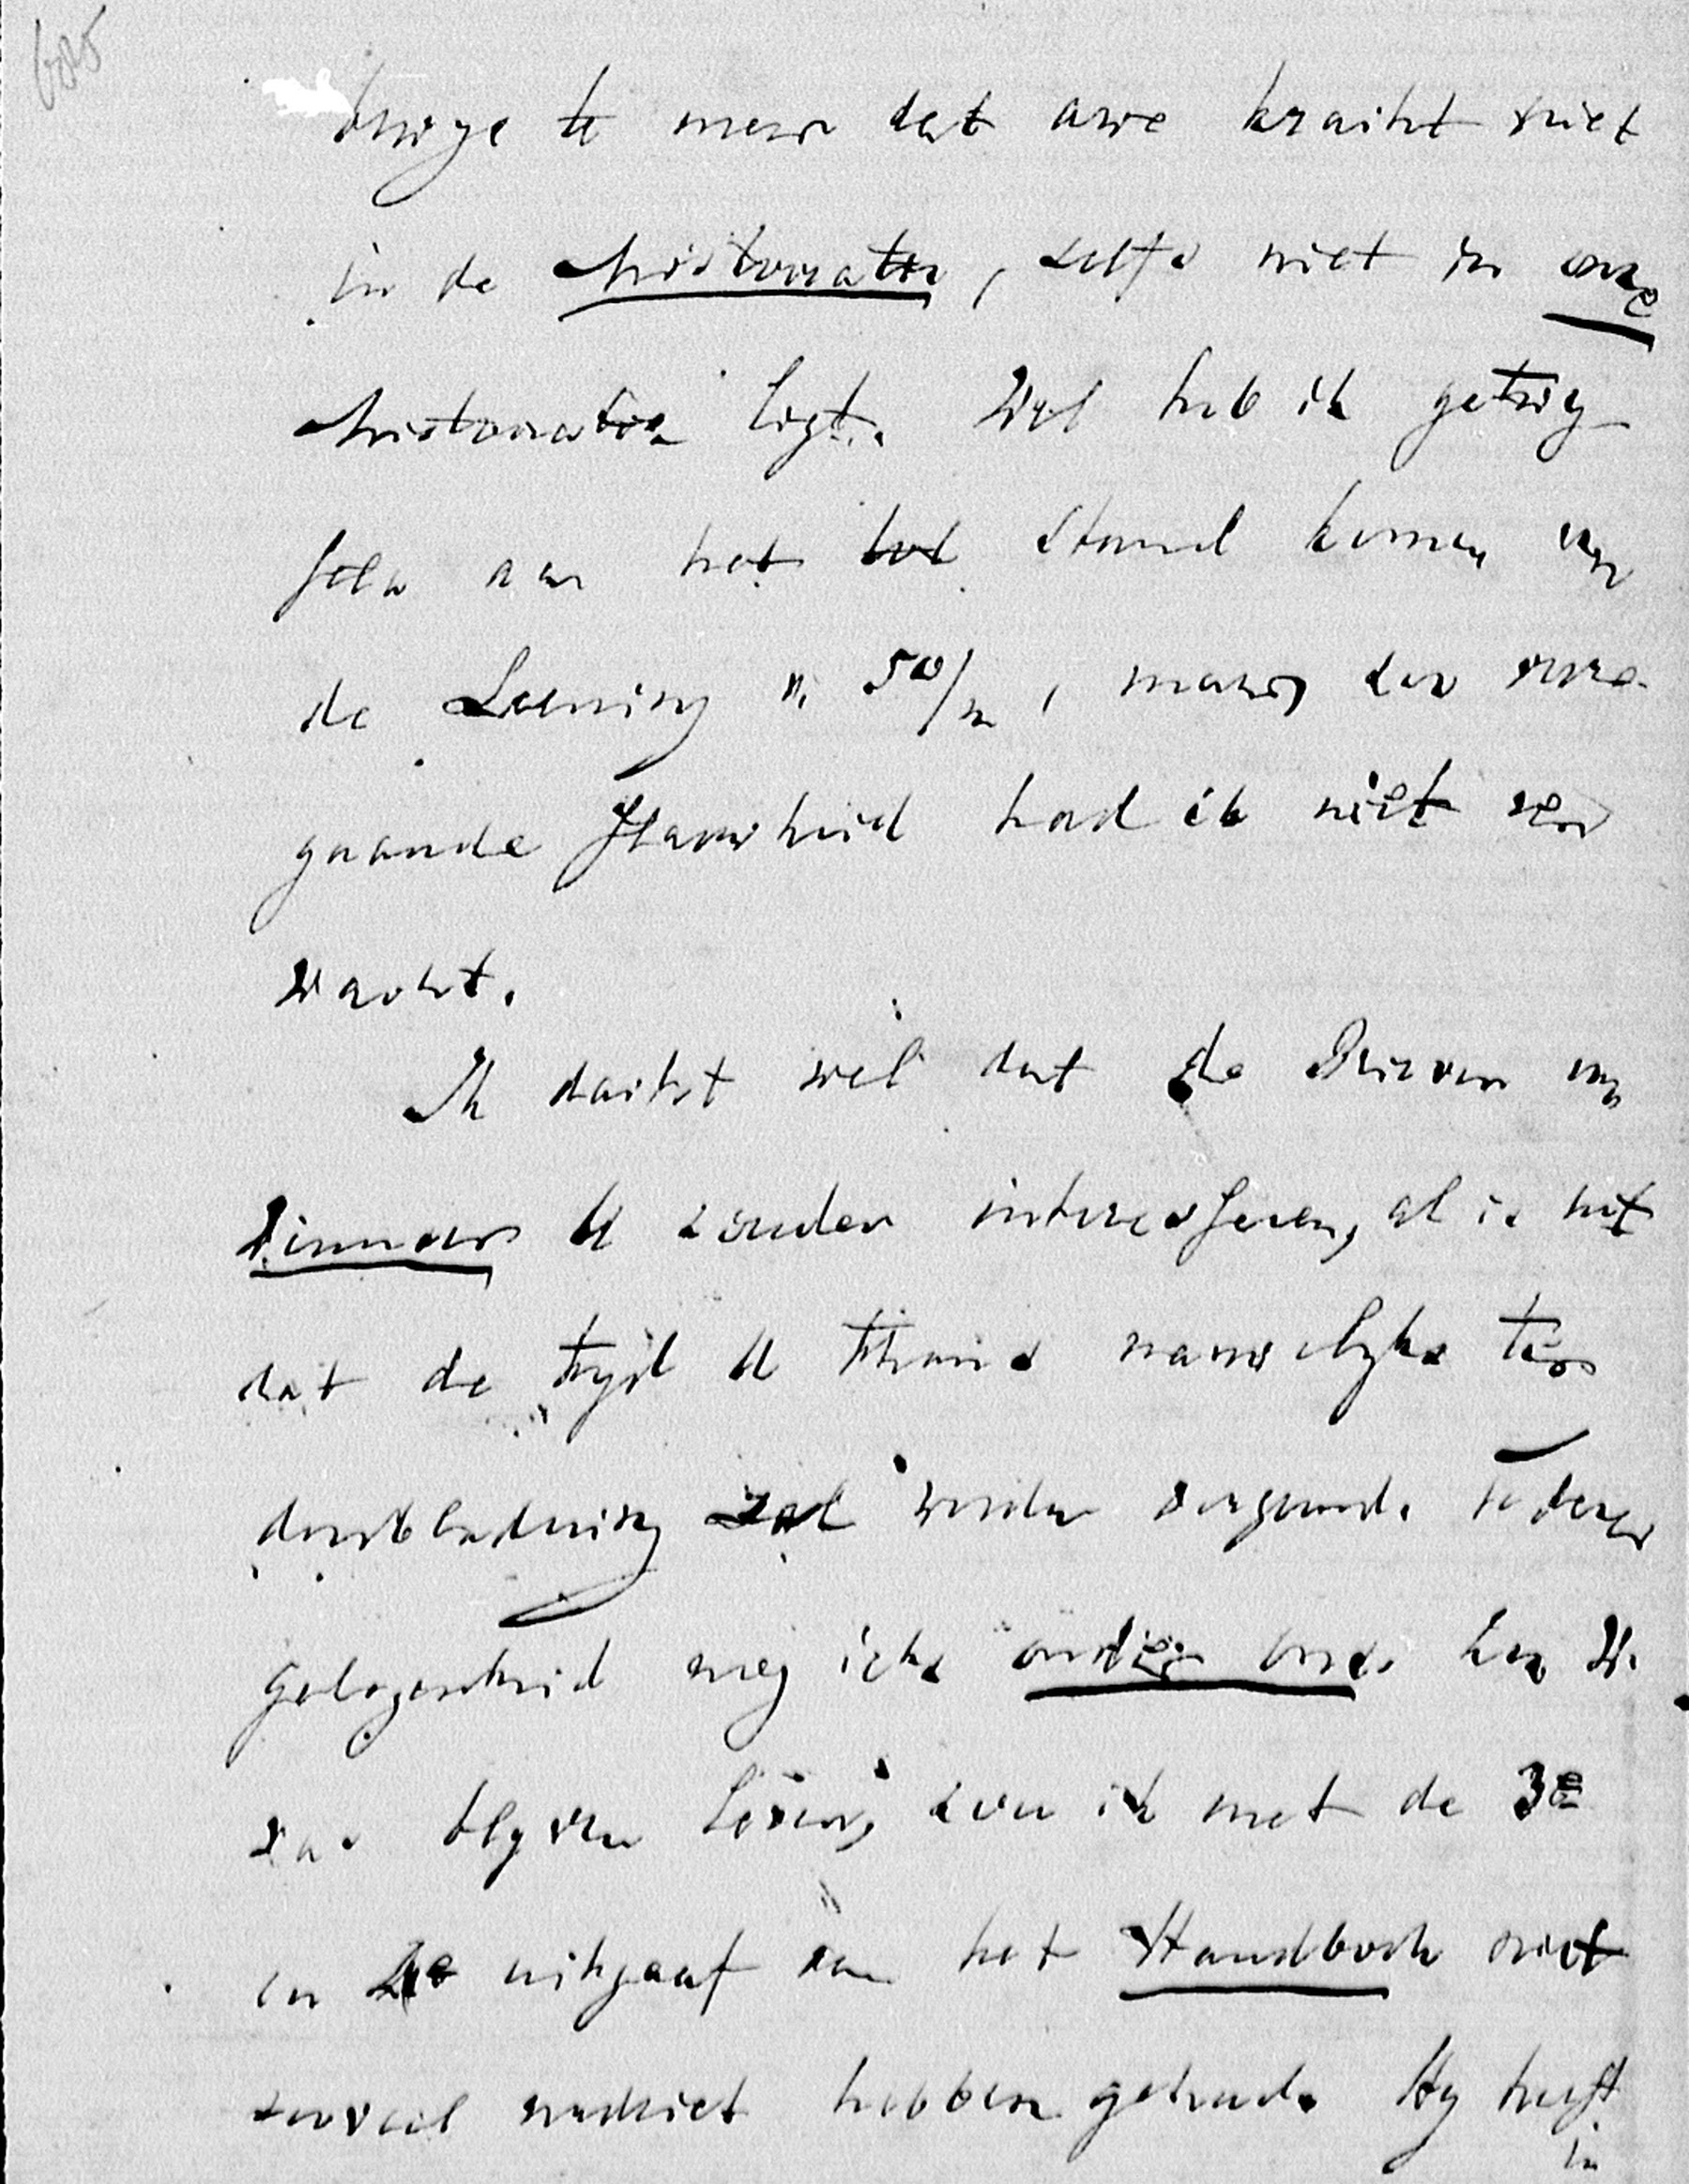 te meer dat onze kracht niet
in de Aristocratie, zelfs niet in onze
Aristocratie ligt. Wel heb ik getwij
feld aan het tot stand komen van
de Leening à 50/m, maar zoo verre
gaande flauwheid had ik niet ver
wacht.
Ik dacht wel dat de Brieven van
U zouden interesseren, al is het
dat de tijd U thans nauwelijks ter
doorbladering zal worden gegund. Iedere
gelegenheid nog iets onder ons. Zoo W.
was blijven leven, zou ik met de 3e
en 4e uitgaaf van het Handboek niet
zooveel verdriet hebben gehad. Hy heeft
in